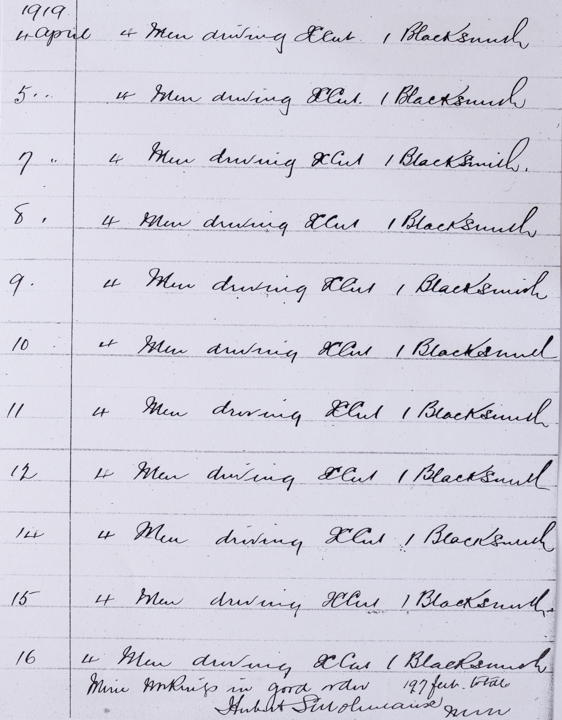 1919
4 April 4 Men driving XCut. 1 Blacksmith
5 " 4 Men driving XCut. 1 Blacksmith
7 " 4 Men driving XCut 1 Blacksmith.
8 " 4 Men driving XCut 1 Blacksmith
9. 4 Men driving XCut 1 Blacksmith
10 4 Men driving XCut 1 Blacksmith
11 4 Men driving XCut 1 Blacksmith
12 4 Men driving XCut 1 Blacksmith
14 4 Men driving XCut 1 Blacksmith
15 4 Men driving XCut 1 Blacksmith.
16 4 Men driving XCut 1 Blacksmith
Mine workings in good order 197 feet total
Hubert